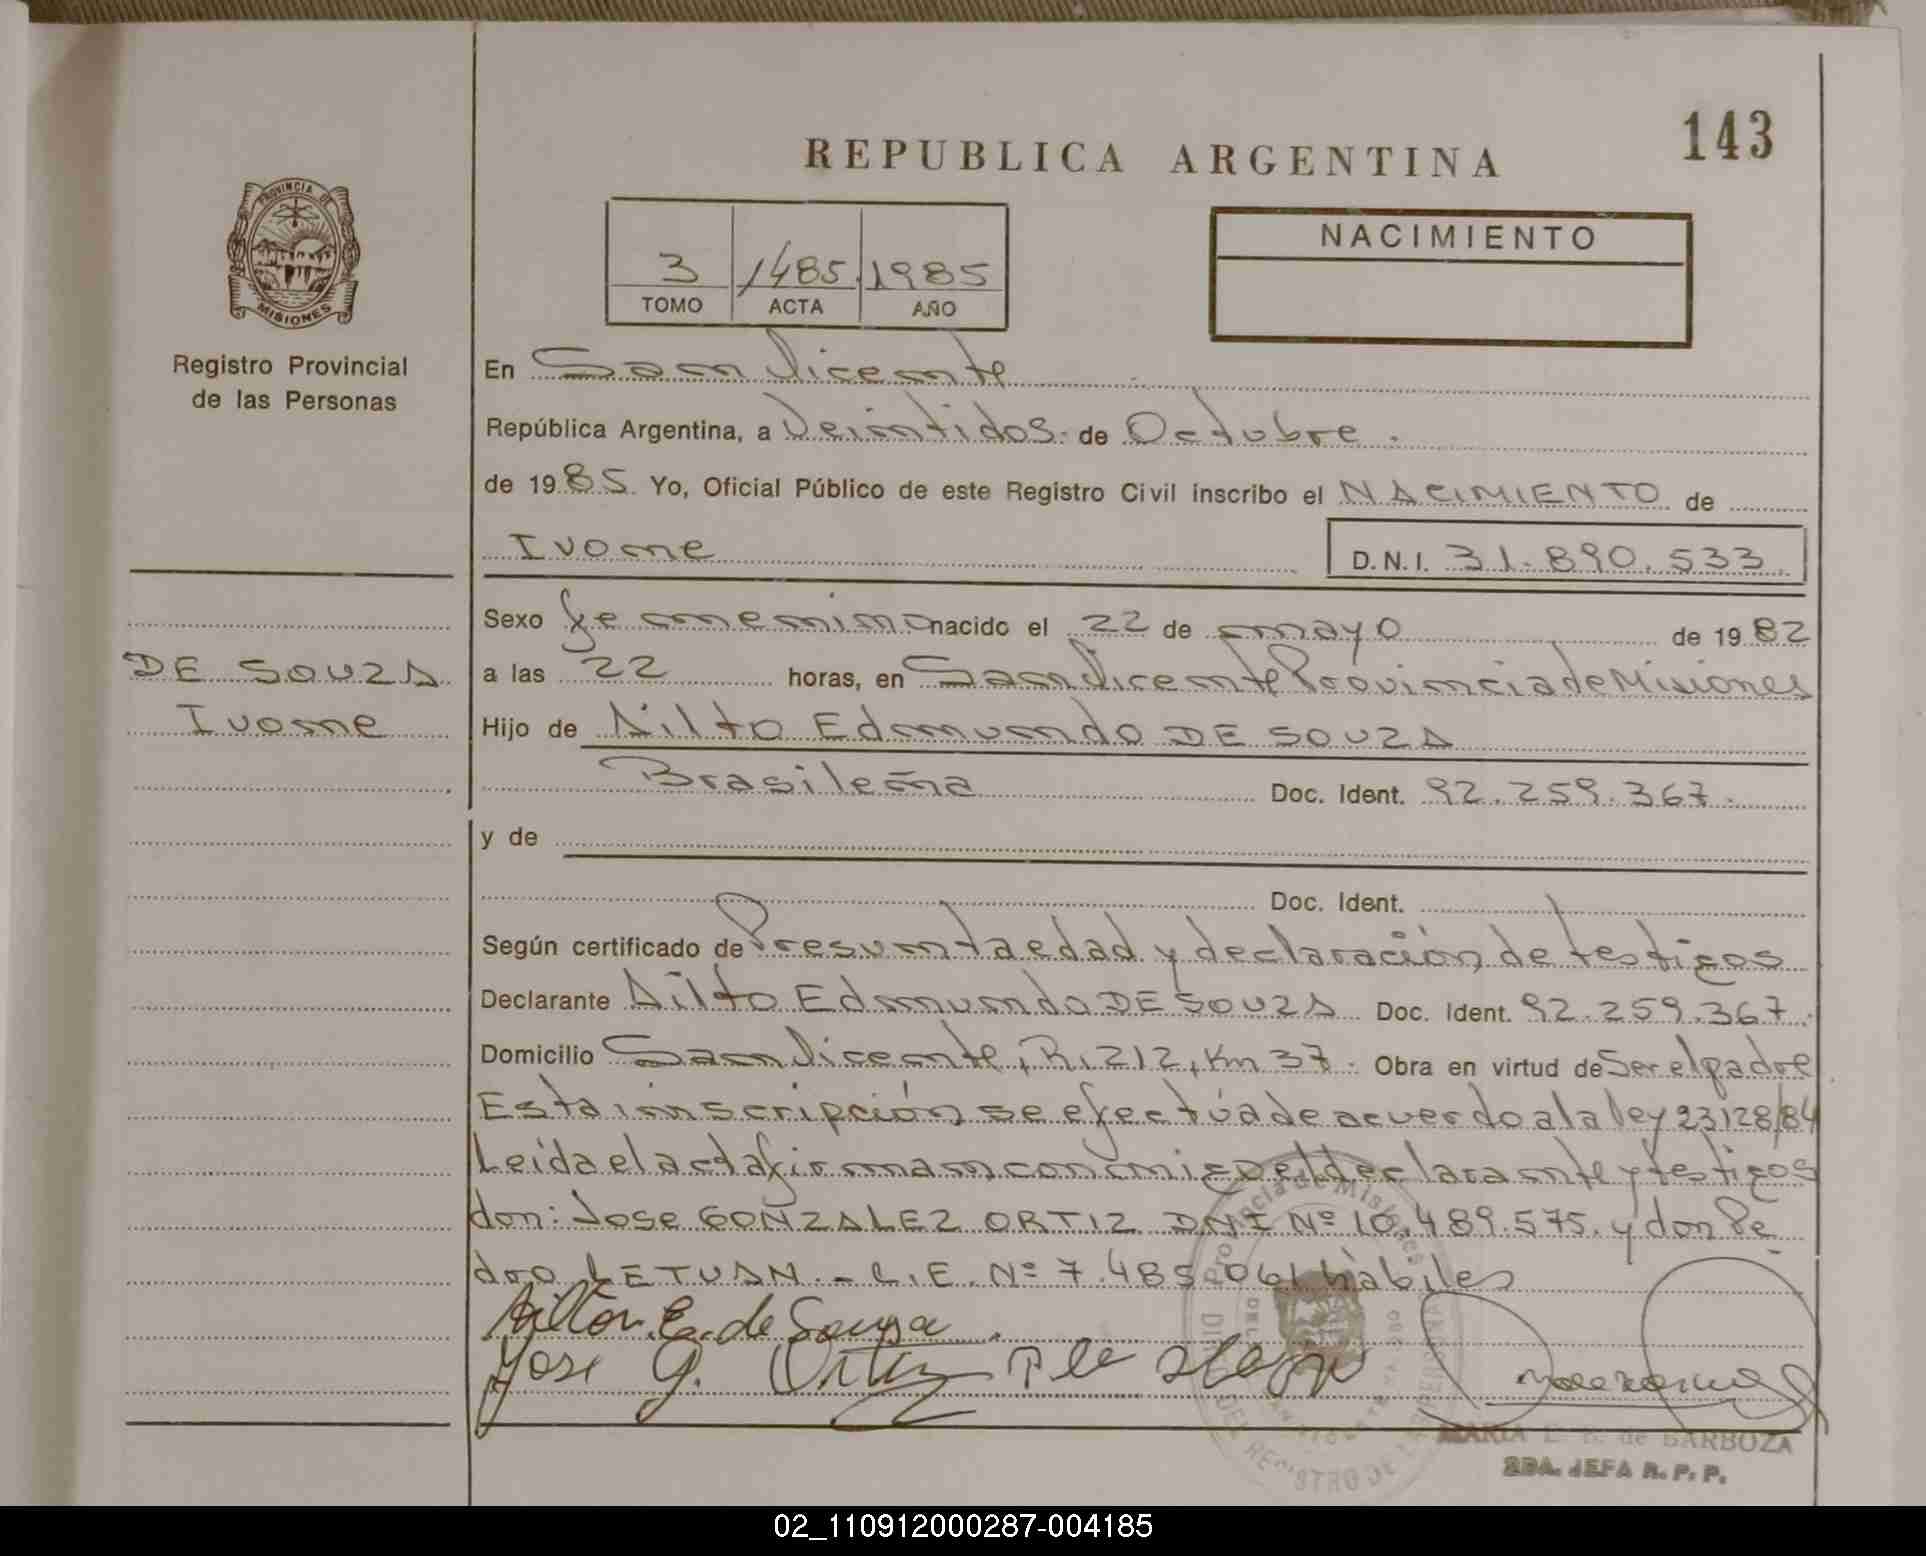 143
REPUBLICA ARGENTINA
PROVINCIA DE
MISIONES
Registro Provincial
de las Personas
3 1485 1985
TOMO ACTA AÑO
NACIMIENTO
En San Vicente
República Argentina, a Veintidos de Octubre.
de 1985 Yo, Oficial Público de este Registro Civil inscribo el NACIMIENTO de
Ivone D.N.I. 31.890.533.
Sexo femenino nacido el 22 de mayo de 1982
DE SOUZA
Ivone
a las 22 horas, en San Vicente Provincia de Misiones
Hijo de Ailto Edmundo DE SOUZA
Brasileña Doc. Ident. 92.259.367.
y de
Doc. Ident.
Según certificado de Presunta edad y declaración de testigos
Declarante Ailto Edmundo DE SOUZA Doc. Ident. 92.259.367.
Domicilio San Vicente, R. 212, Km 37. Obra en virtud de Ser el padre
Esta inscripción se efectúa de acuerdo a la ley 23128/84
Leída el acta firman conmigo el declarante y testigos
don: Jose GONZALEZ ORTIZ DNI Nº 10.489.575. y don Pe
dro LETUAN.- L.E. Nº 7.485.061 hábiles
Ailton E. de Souza
Jose G. Ortiz
Provincia de Misiones
MARIA E. E. de BARBOZA
2DA. JEFA R. P. P.
02_110912000287-004185